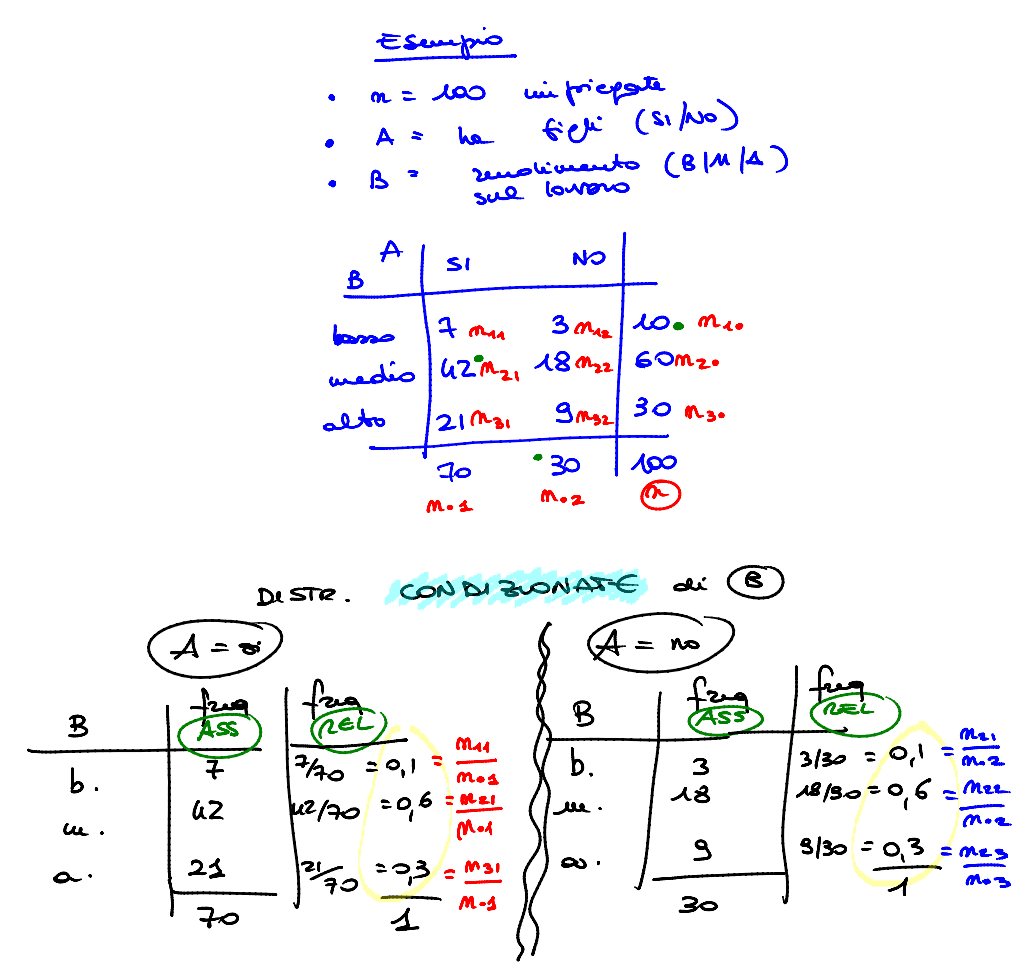 Esempio
• n = 100 impiegate
• A = ha figli (SI/NO)
• B = rendimento (B/M/A)
sul lavoro
A SI NO
B
basso 7 n11 3 n12 10 n1•
medio 42 n21 18 n22 60 n2•
alto 21 n31 9 n32 30 n3•
70 30 100
n•1 n•2 n
DISTR. CONDIZIONATE di B
A = si
B freq ASS freq REL
b. 7 7/70 = 0,1 = n11/n•1
m. 42 42/70 = 0,6 = n21/n•1
a. 21 21/70 = 0,3 = n31/n•1
70 1
A = no
B freq ASS freq REL
b. 3 3/30 = 0,1 = n21/n•2
m. 18 18/30 = 0,6 = n22/n•2
a. 9 9/30 = 0,3 = n23/n•3
30 1